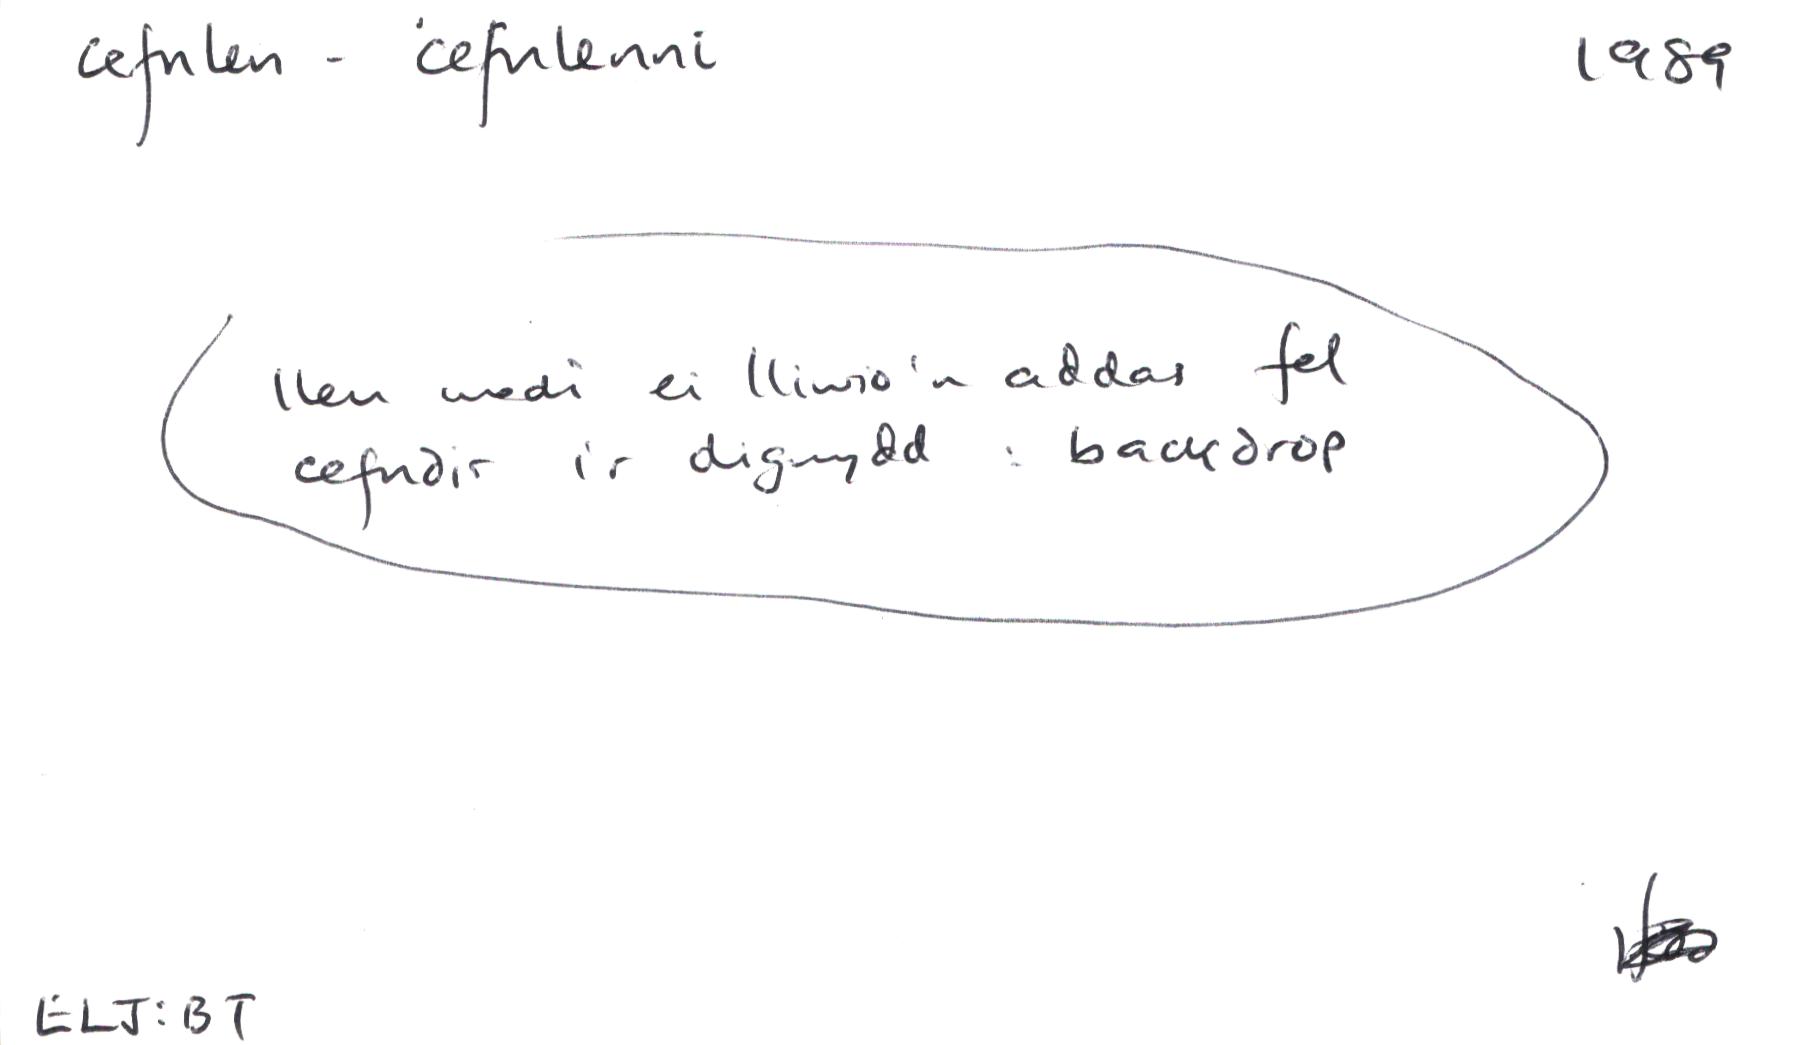 cefnlen - cefnlenni 1989
llen wedi ei lliwio'n addas fel
cefndir i'r digwydd : backdrop
ELJ:BT